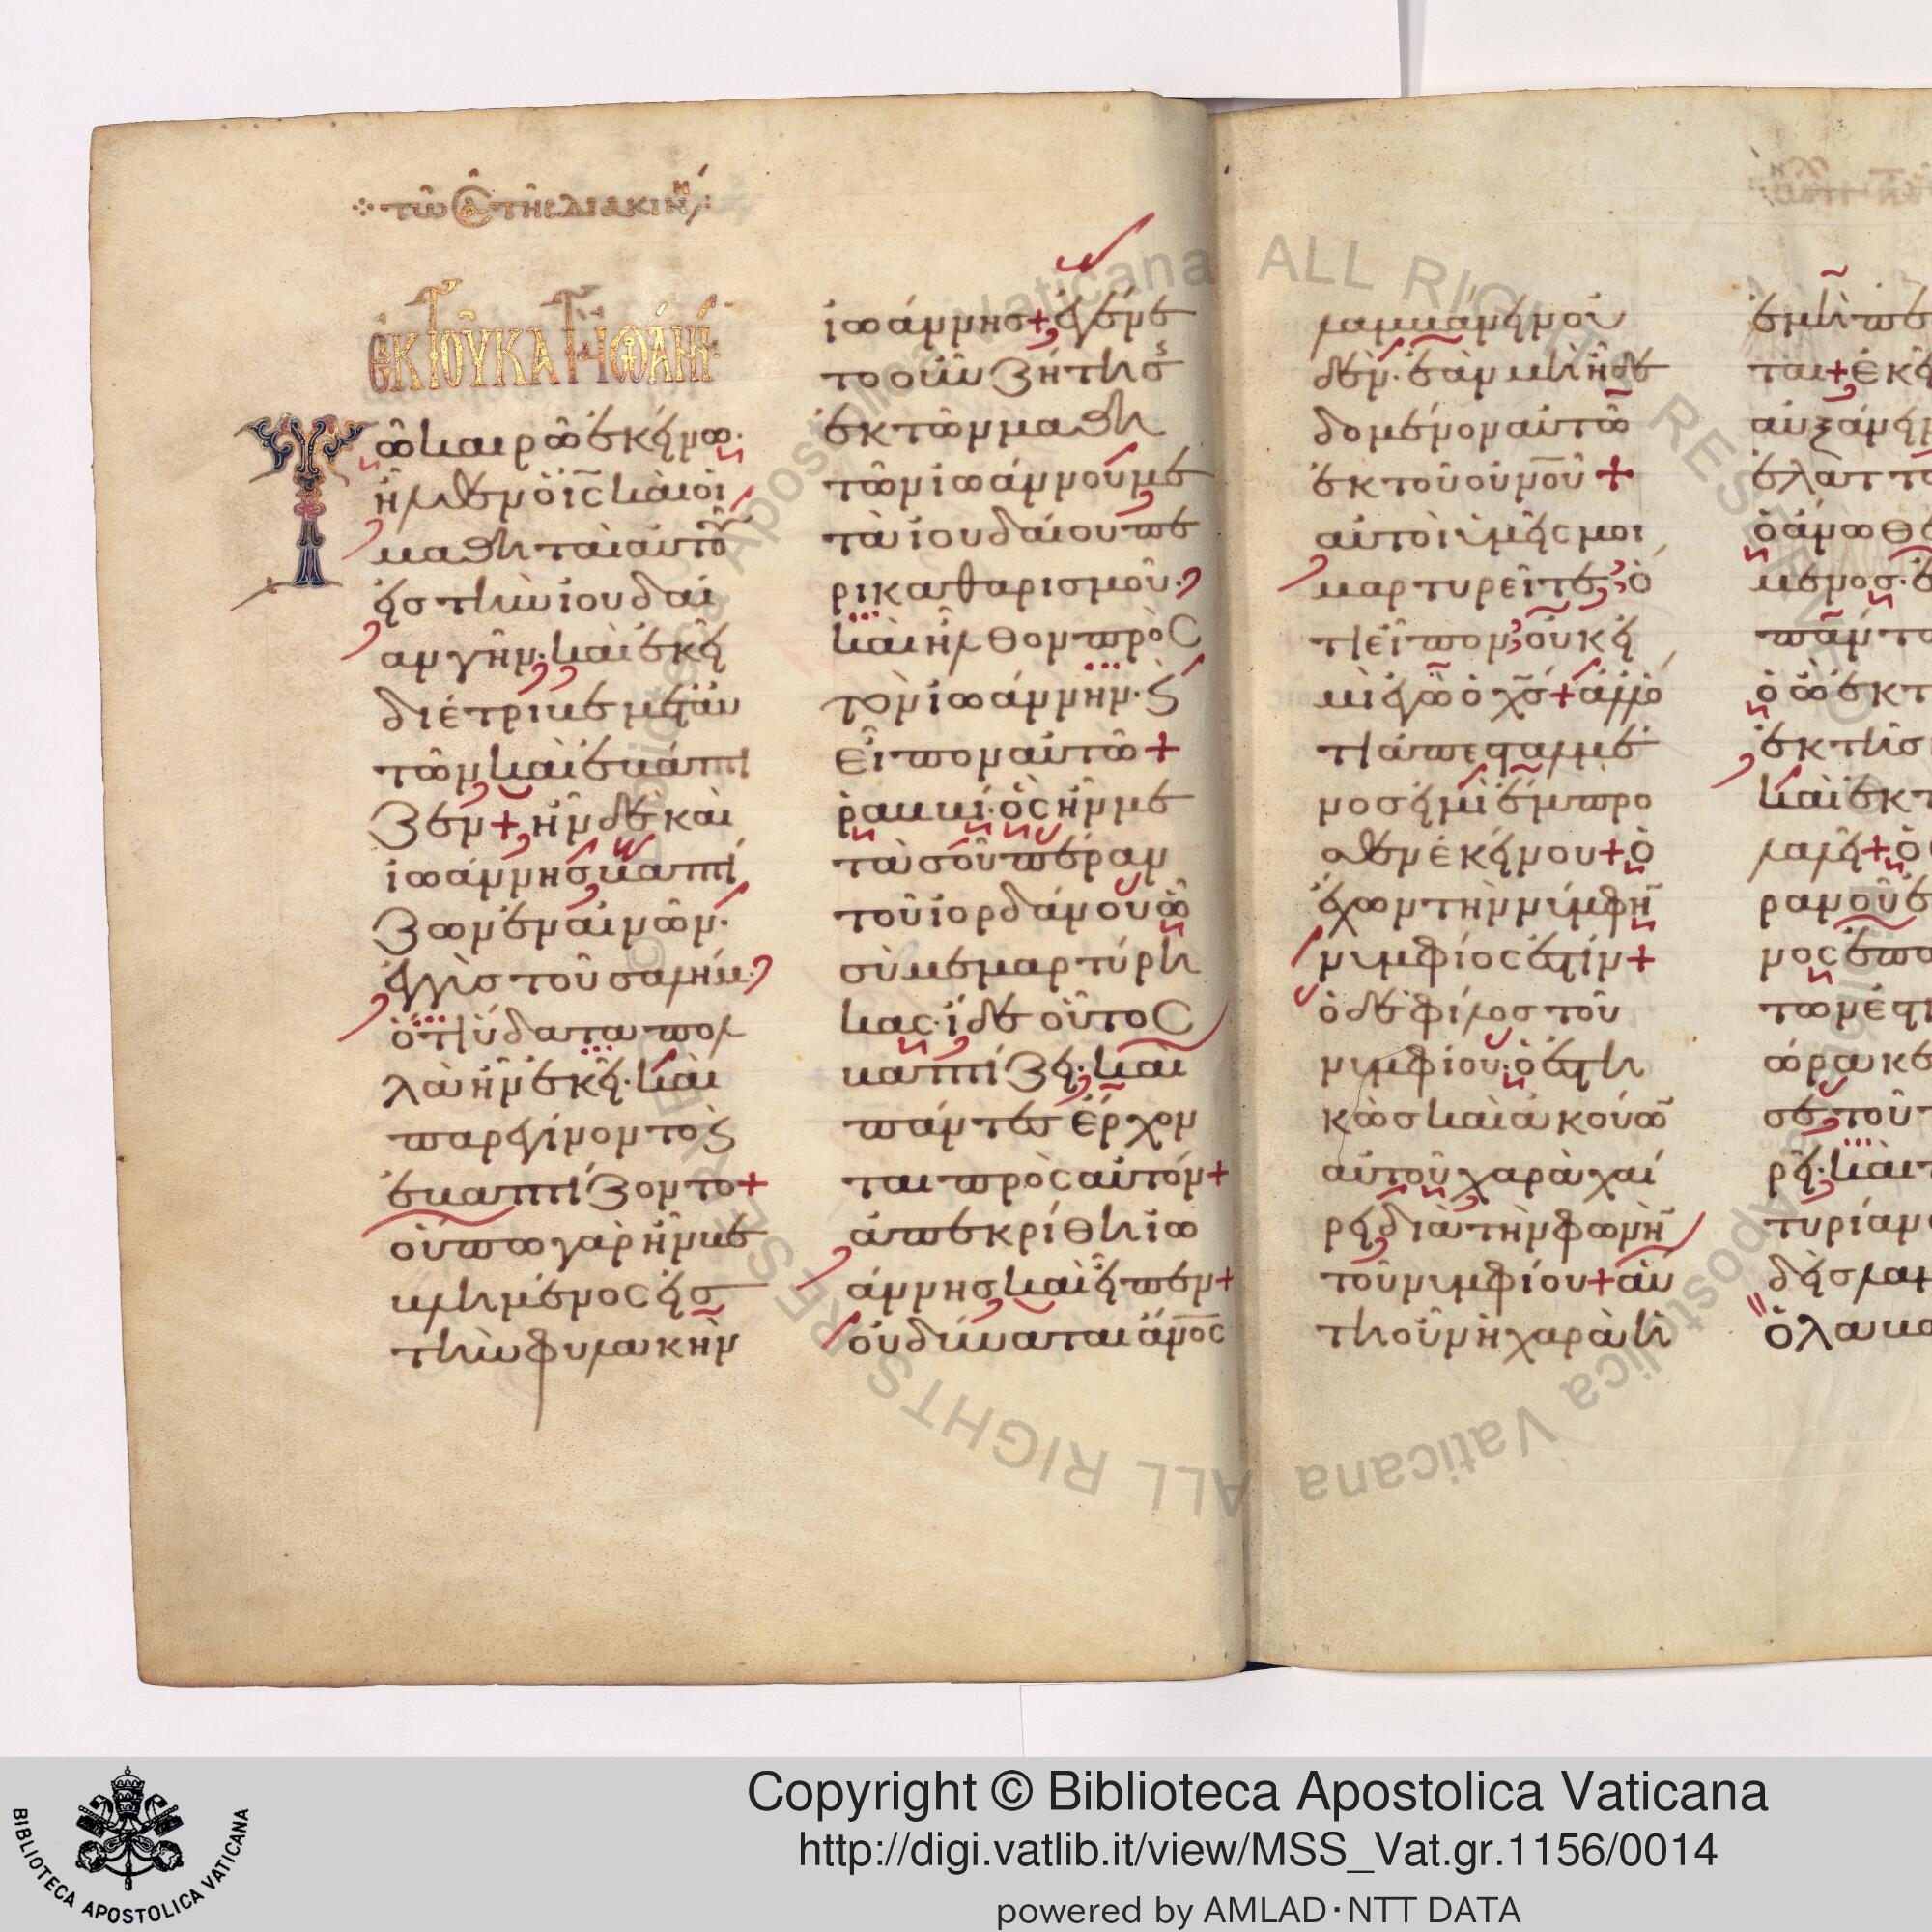 τῶ Ϲ̅Α̅ τῆς διακινη
ἐκ τοῦ κατὰ ἰωάνν
Τῶ καιρῶ ἐκείνω·
ἦλθεν ὁ ι̅ς̅ καὶ οἱ
μαθηταὶ αὐτοῦ
εἰς τὴν ἰουδαί
αν γῆν· καὶ ἐκεῖ
διέτριβε μετ αὐ
τῶν καὶ ἐβάπτι
ζεν + ἦν δὲ καὶ
ἰωάννησ βαπτί
ζων ἐν αἰνῶν·
ἐγγὺσ τοῦ σαλήμ·
ὅτι ὕδατα πολ
λὰ ἦν ἐκεῖ· καὶ
παρεγίνοντο ϗ
ἐβαπτίζοντο +
οὔπω γὰρ ἦν βε
βλημένος εἰσ
τὴν φυλακὴν
ἰωάννησ + ἐγένε
το οὖν ζήτησϛ
ἐκ τῶν μαθη
τῶν ἰωάννου με
τὰ ἰουδαίου πε
ρι καθαρισμοῦ·
καὶ ἦλθον πρὸς
τὸν ἰωάννην· ϗ
εἶπον αὐτῶ +
ῥαββί· ὃς ἦν με
τὰ σοῦ πέραν
τοῦ ἰορδάνου ᾧ
σὺ μεμαρτύρη
κας· ἴδε οὗτος
βαπτίζει· καὶ
πάντεσ ἔρχον
ται πρὸς αὐτόν +
ἀπεκρίθη ἰω
άννησ καὶ εἶπεν +
οὐ δύναται ἄνο̅ς
λαμβάνειν οὐ
δέν· ἐὰν μὴ ἦ δε
δομένον αὐτῶ
ἐκ τοῦ οὐνο̅ῦ +
αὐτοὶ ὑμεῖς μοι
μαρτυρεῖτε ὅ
τι εἶπον οὐκ εἰ
μὶ ἐγὼ ὁ χ̅σ̅ + ἀλλ ὅ
τι ἀπεσταλμέ
νοσ εἰμὶ ἔμπρο
σθεν ἐκείνου + ὁ
ἔχων τὴν νύμφη̅
νυμφίος ἐστίν +
ὁ δὲ φίλοσ τοῦ
νυμφίου· ὁ ἐστη
κὼσ καὶ ἀκούω̅
αὐτοῦ χαρᾶ χαί
ρει διὰ τὴν φωνὴ̅
τοῦ νυμφίου + αὕ
τη οὖν ἡ χαρὰ ἡ
ἐμὴ πε
ται + ἐκεῖ
αὐξάνει
ἐλαττο
ὁ ἄνωθε
μενοσ· ἐ
πάντ
ὁ ὢν ἐκ τ
ἐκ τῆσ
καὶ ἐκ τ
λαλεῖ + ὁ
ρανοῦ ἐ
νος ἐπά
των ἐστι
ἑώρακε
σε τοῦτ
ρεῖ· καὶ τ
τυρίαν
δεὶσ λαμ
ὁ λαβ
Copyright © Biblioteca Apostolica Vaticana
http://digi.vatlib.it/view/MSS_Vat.gr.1156/0014
powered by AMLAD·NTT DATA
BIBLIOTECA APOSTOLICA VATICANA